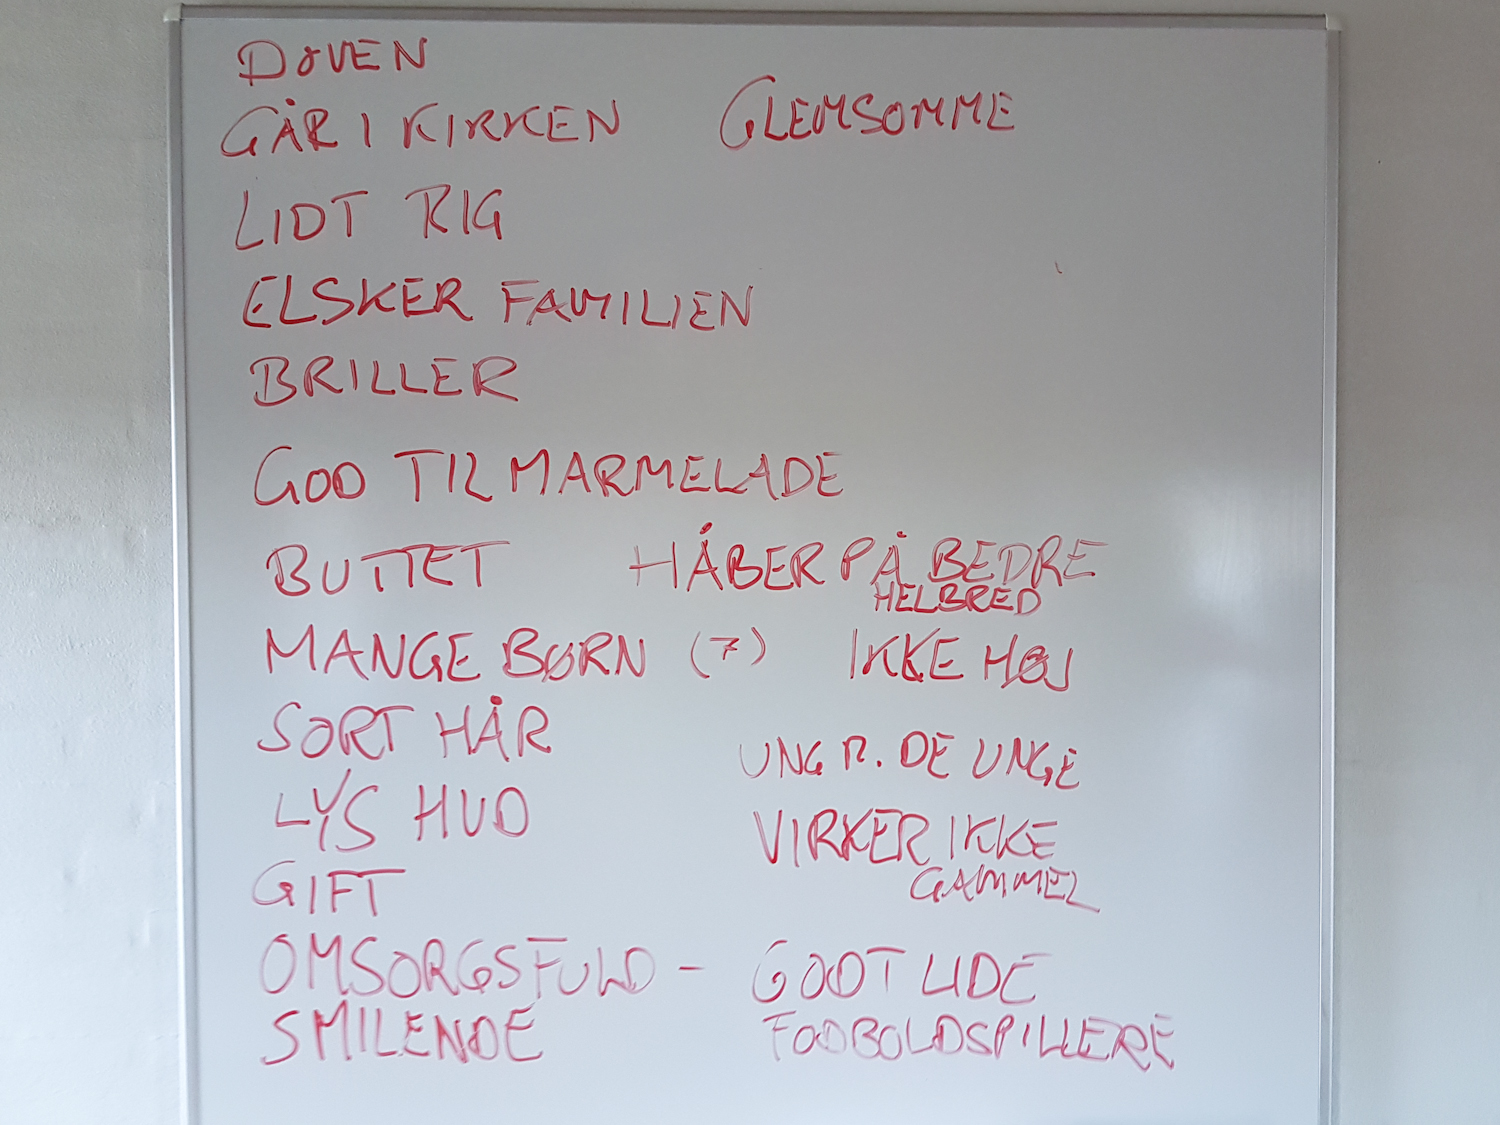 DOVEN
GÅR I KIRKEN GLEMSOMME
LIDT RIG
ELSKER FAMILIEN
BRILLER
GOD TIL MARMELADE
BUTTET HÅBER PÅ BEDRE
HELBRED
MANGE BØRN (7) IKKE HØJ
SORT HÅR
UNG M. DE UNGE
LYS HUD
VIRKER IKKE
GAMMEL
GIFT
OMSORGSFULD - GODT LIDE
SMILENDE FODBOLDSPILLERE